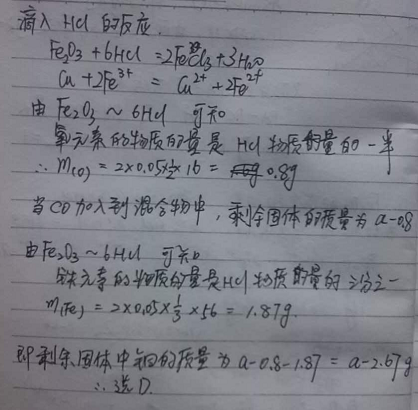 滴入 HCl 的反应.
Fe₂O₃ + 6HCl = 2FeCl₃ + 3H₂O
Cu + 2Fe³⁺ = Cu²⁺ + 2Fe²⁺
由 Fe₂O₃ ~ 6HCl 可知
氧元素的物质的量是 HCl 物质的量的一半
∴ m(O) = 2×0.05×½×16 = 0.8g
当CO加入到混合物中, 剩余固体的质量为 a-0.8
由 Fe₂O₃ ~ 6HCl 可知
铁元素的物质的量是HCl 物质的量的三分之一
m(Fe) = 2×0.05×⅓×56 = 1.87g.
即剩余固体中铜的质量为 a-0.8-1.87 = a-2.67g
∴ 选D.